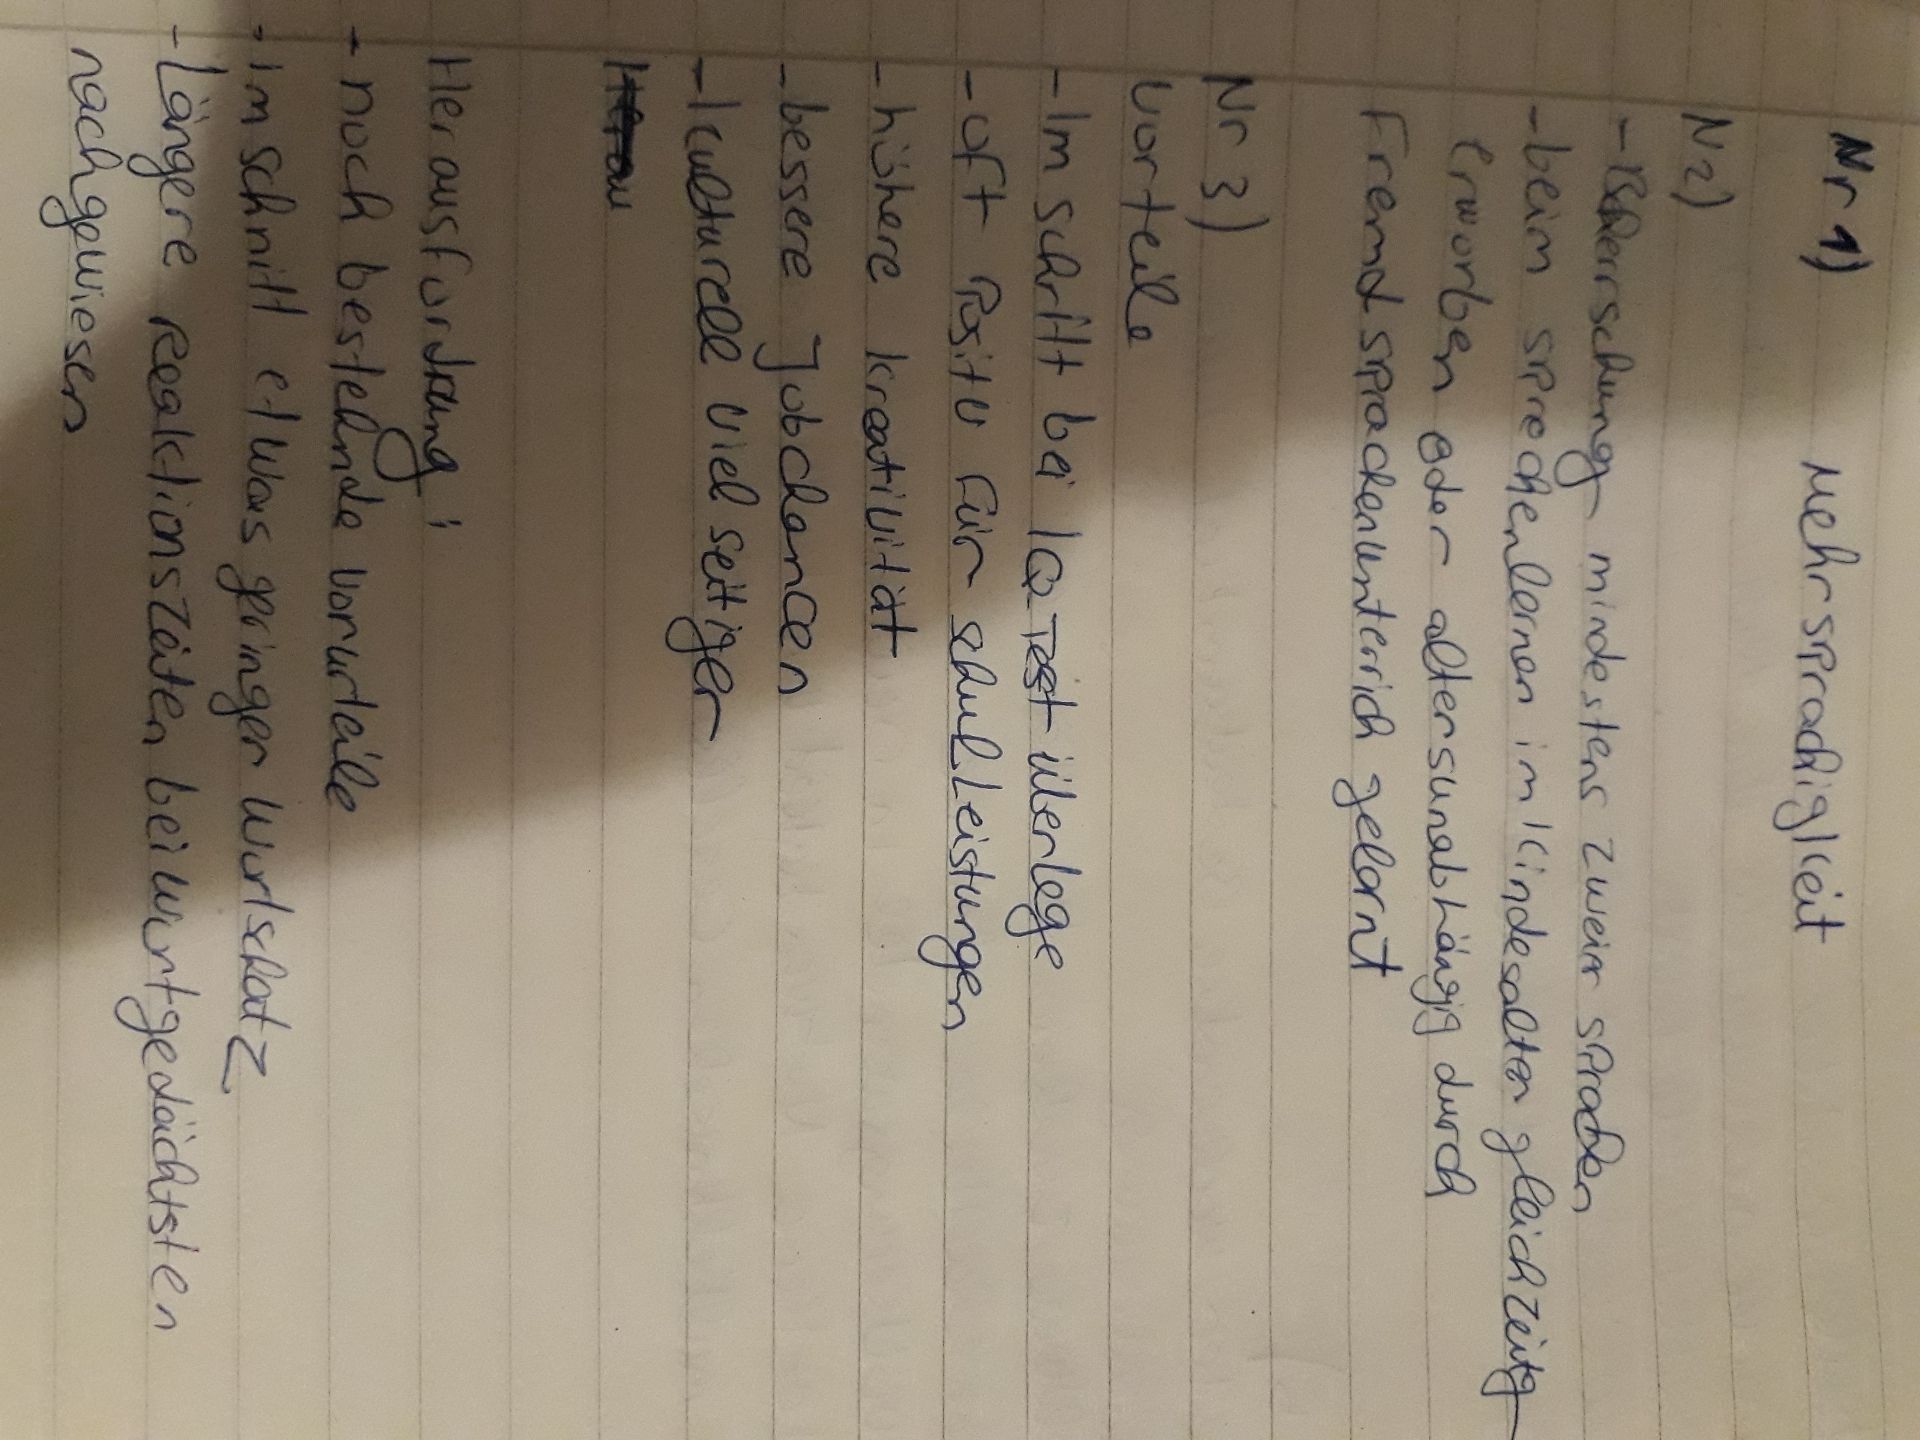 Nr 1) Mehrsprachigkeit
N 2)
- Beherrschung mindestens zweier sprachen
- beim sprechenlernen im Kindesalter gleichzeitg
erworben oder altersunabhängig durch
Fremdsprachenunterrich gelernt
Nr 3)
Vorteile
- Im schnitt bei IQ Test überlege
- oft Positv für schulleistungen
- höhere kreativität
- bessere Jobchancen
- kulturell vielseitiger
Herausfordrung:
- noch bestehnde vorurteile
- im schnitt etwas geringer wortschatz
- Längere reaktionszeiten bei wortgedächtsten
nachgewiesen